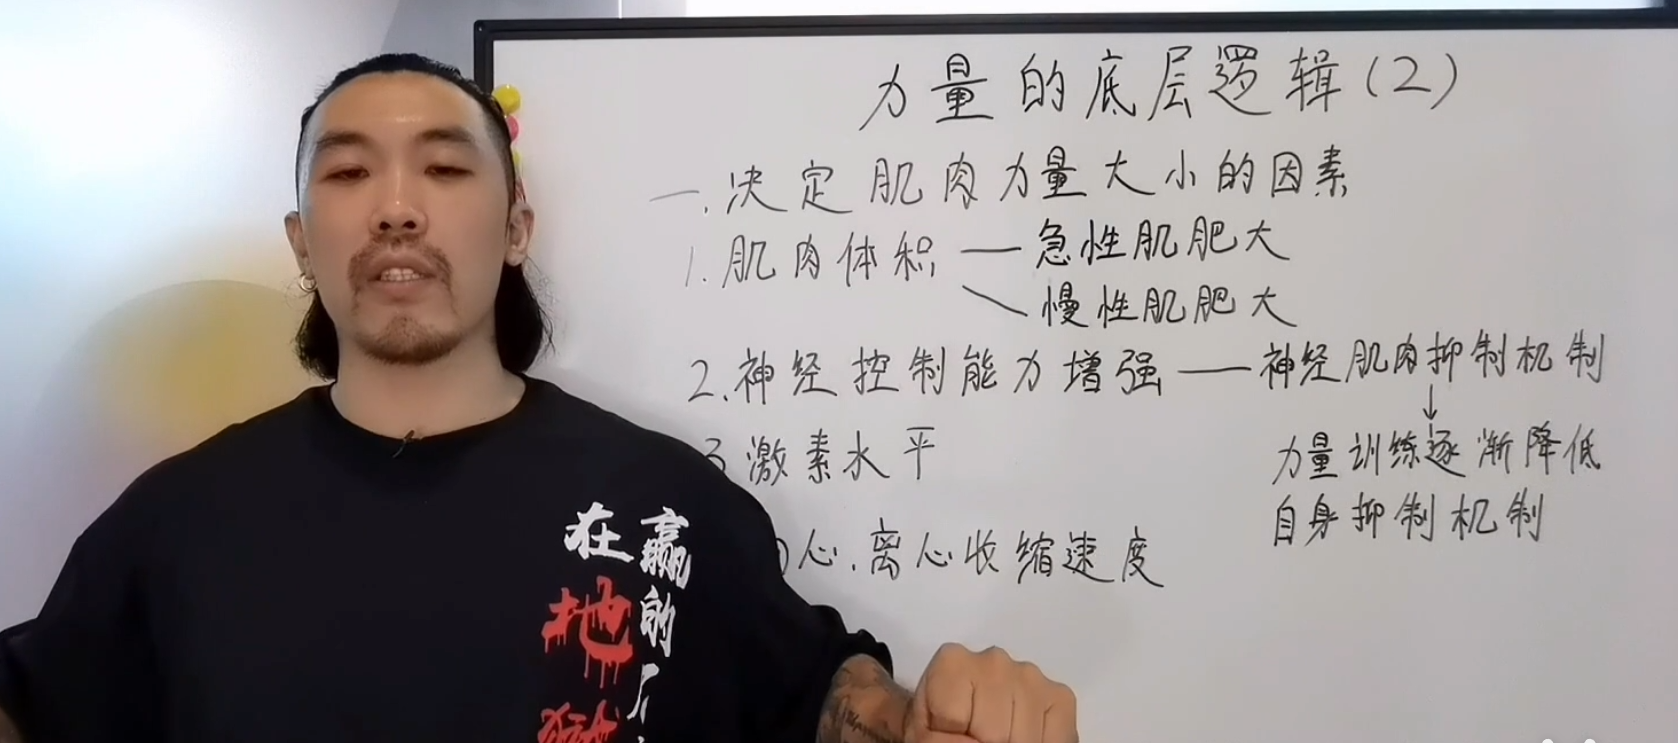 力量的底层逻辑(2)
一.决定肌肉力量大小的因素
1.肌肉体积——急性肌肥大
慢性肌肥大
2.神经控制能力增强——神经肌肉抑制机制
↓
力量训练逐渐降低
自身抑制机制
3激素水平
心.离心收缩速度
赢的
在地狱